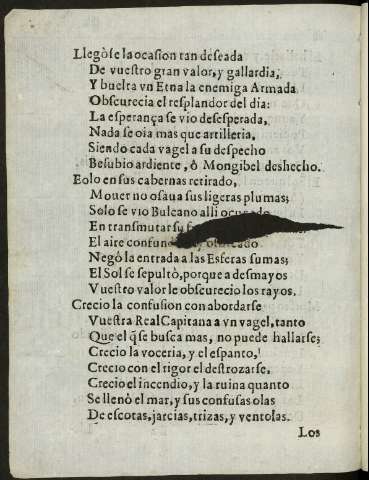 Llegòse la ocasion tan deseada
De vuestro gran valor, y gallardia,
Y buelta vn Etna la enemiga Armada
Obscurecia el resplandor del dia:
La esperança se vio desesperada,
Nada se oia mas que artilleria,
Siendo cada vagel a su despecho
Besubio ardiente, ò Mongibel deshecho.
Eolo en sus cabernas retirado,
Mouer no osaua sus ligeras plumas;
Solo se vio Bulcano alli
En transmutar su
El aire
Negó la entrada a las Esferas sumas;
El Sol se sepultò, porque a desmayos
Vuestro valor le obscurecio los rayos.
Crecio la confusion con abordarse
Vuestra Real Capitana a vn vagel, tanto
Que el q̃ se busca mas, no puede hallarse;
Crecio la voceria, y el espanto,
Crecio con el rigor el destrozarse,
Crecio el incendio, y la ruina quanto
Se llenò el mar, y sus confusas olas
De escotas, jarcias, trizas, y ventolas.
Los